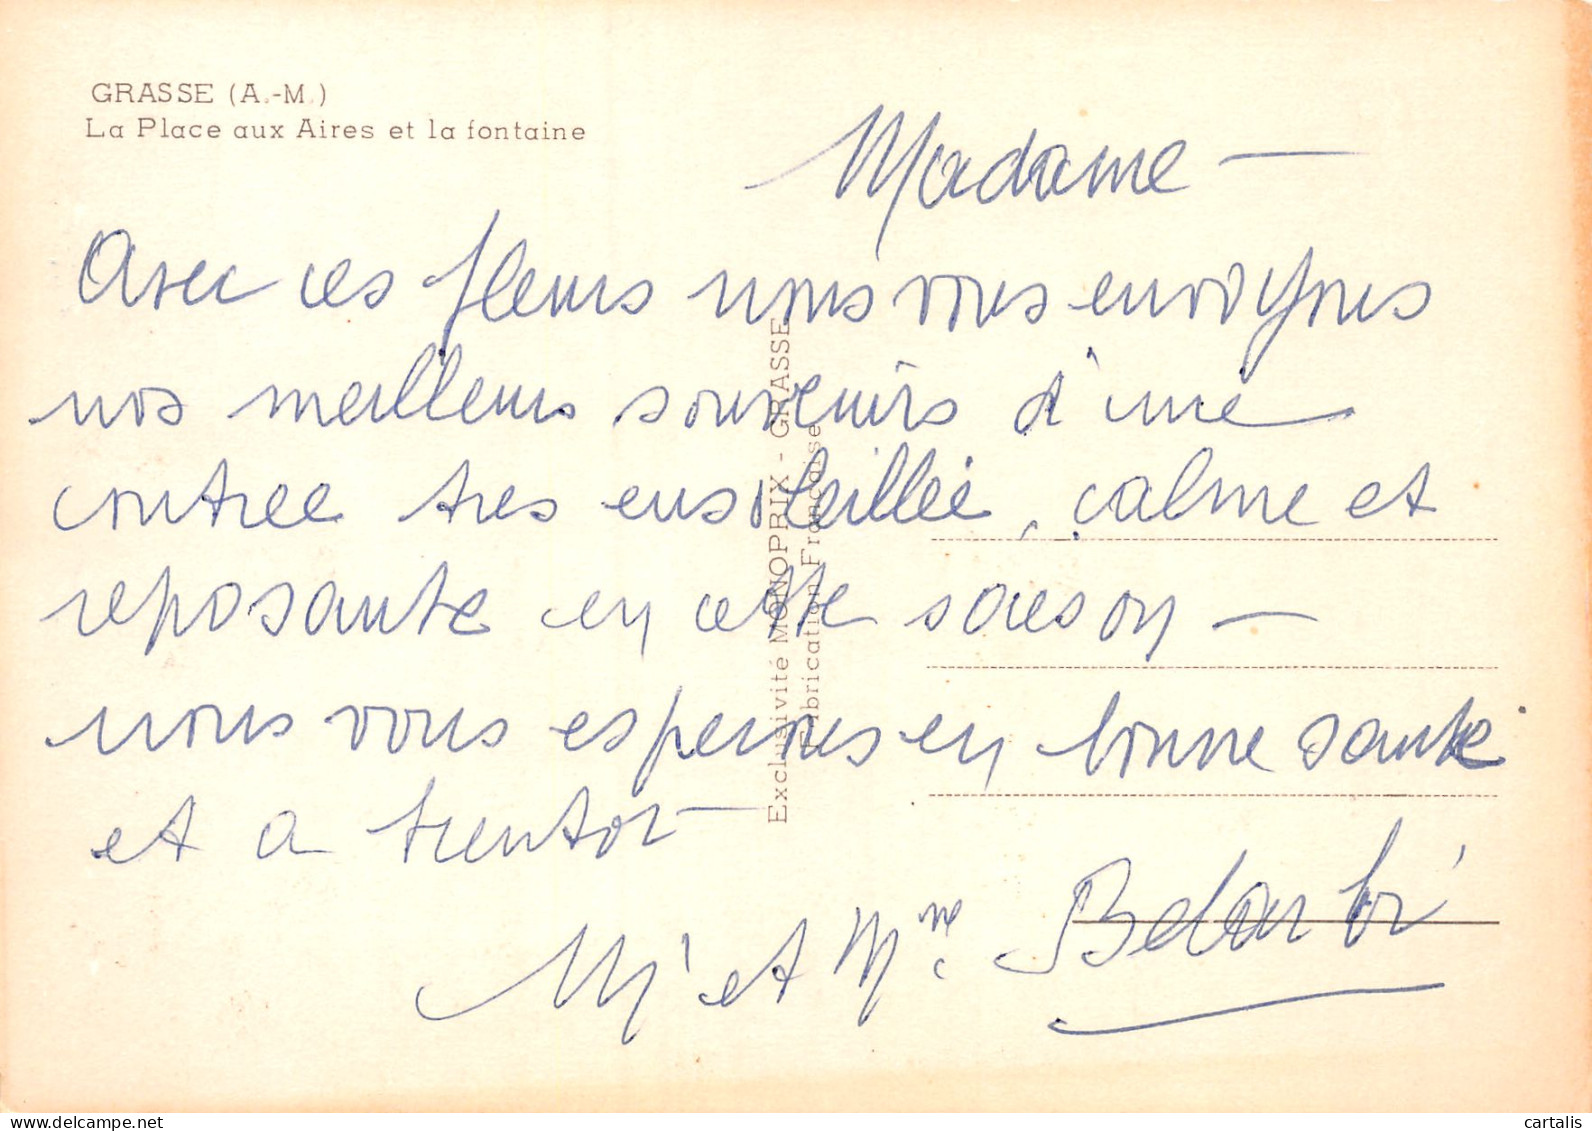 GRASSE (A.-M.)
La Place aux Aires et la fontaine
Madame —
Avec ces fleurs nous vous envoyons
nos meilleurs souvenirs d'une
contree tres ensoleillée, calme et
reposante en cette saison —
nous vous esperons en bonne sante
et a bientot —
Mr et Mme Belarbi
Exclusivité MONOPRIX - GRASSE
Fabrication Française
www.delcampe.net
cartalis